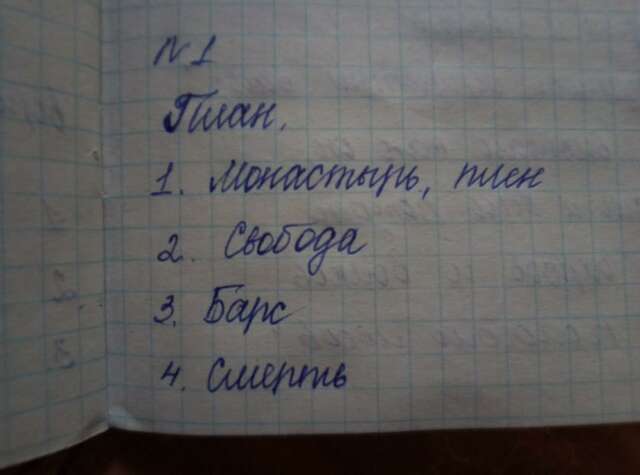 N 1
План.
1. Монастырь, плен
2. Свобода
3. Барс
4. Смерть